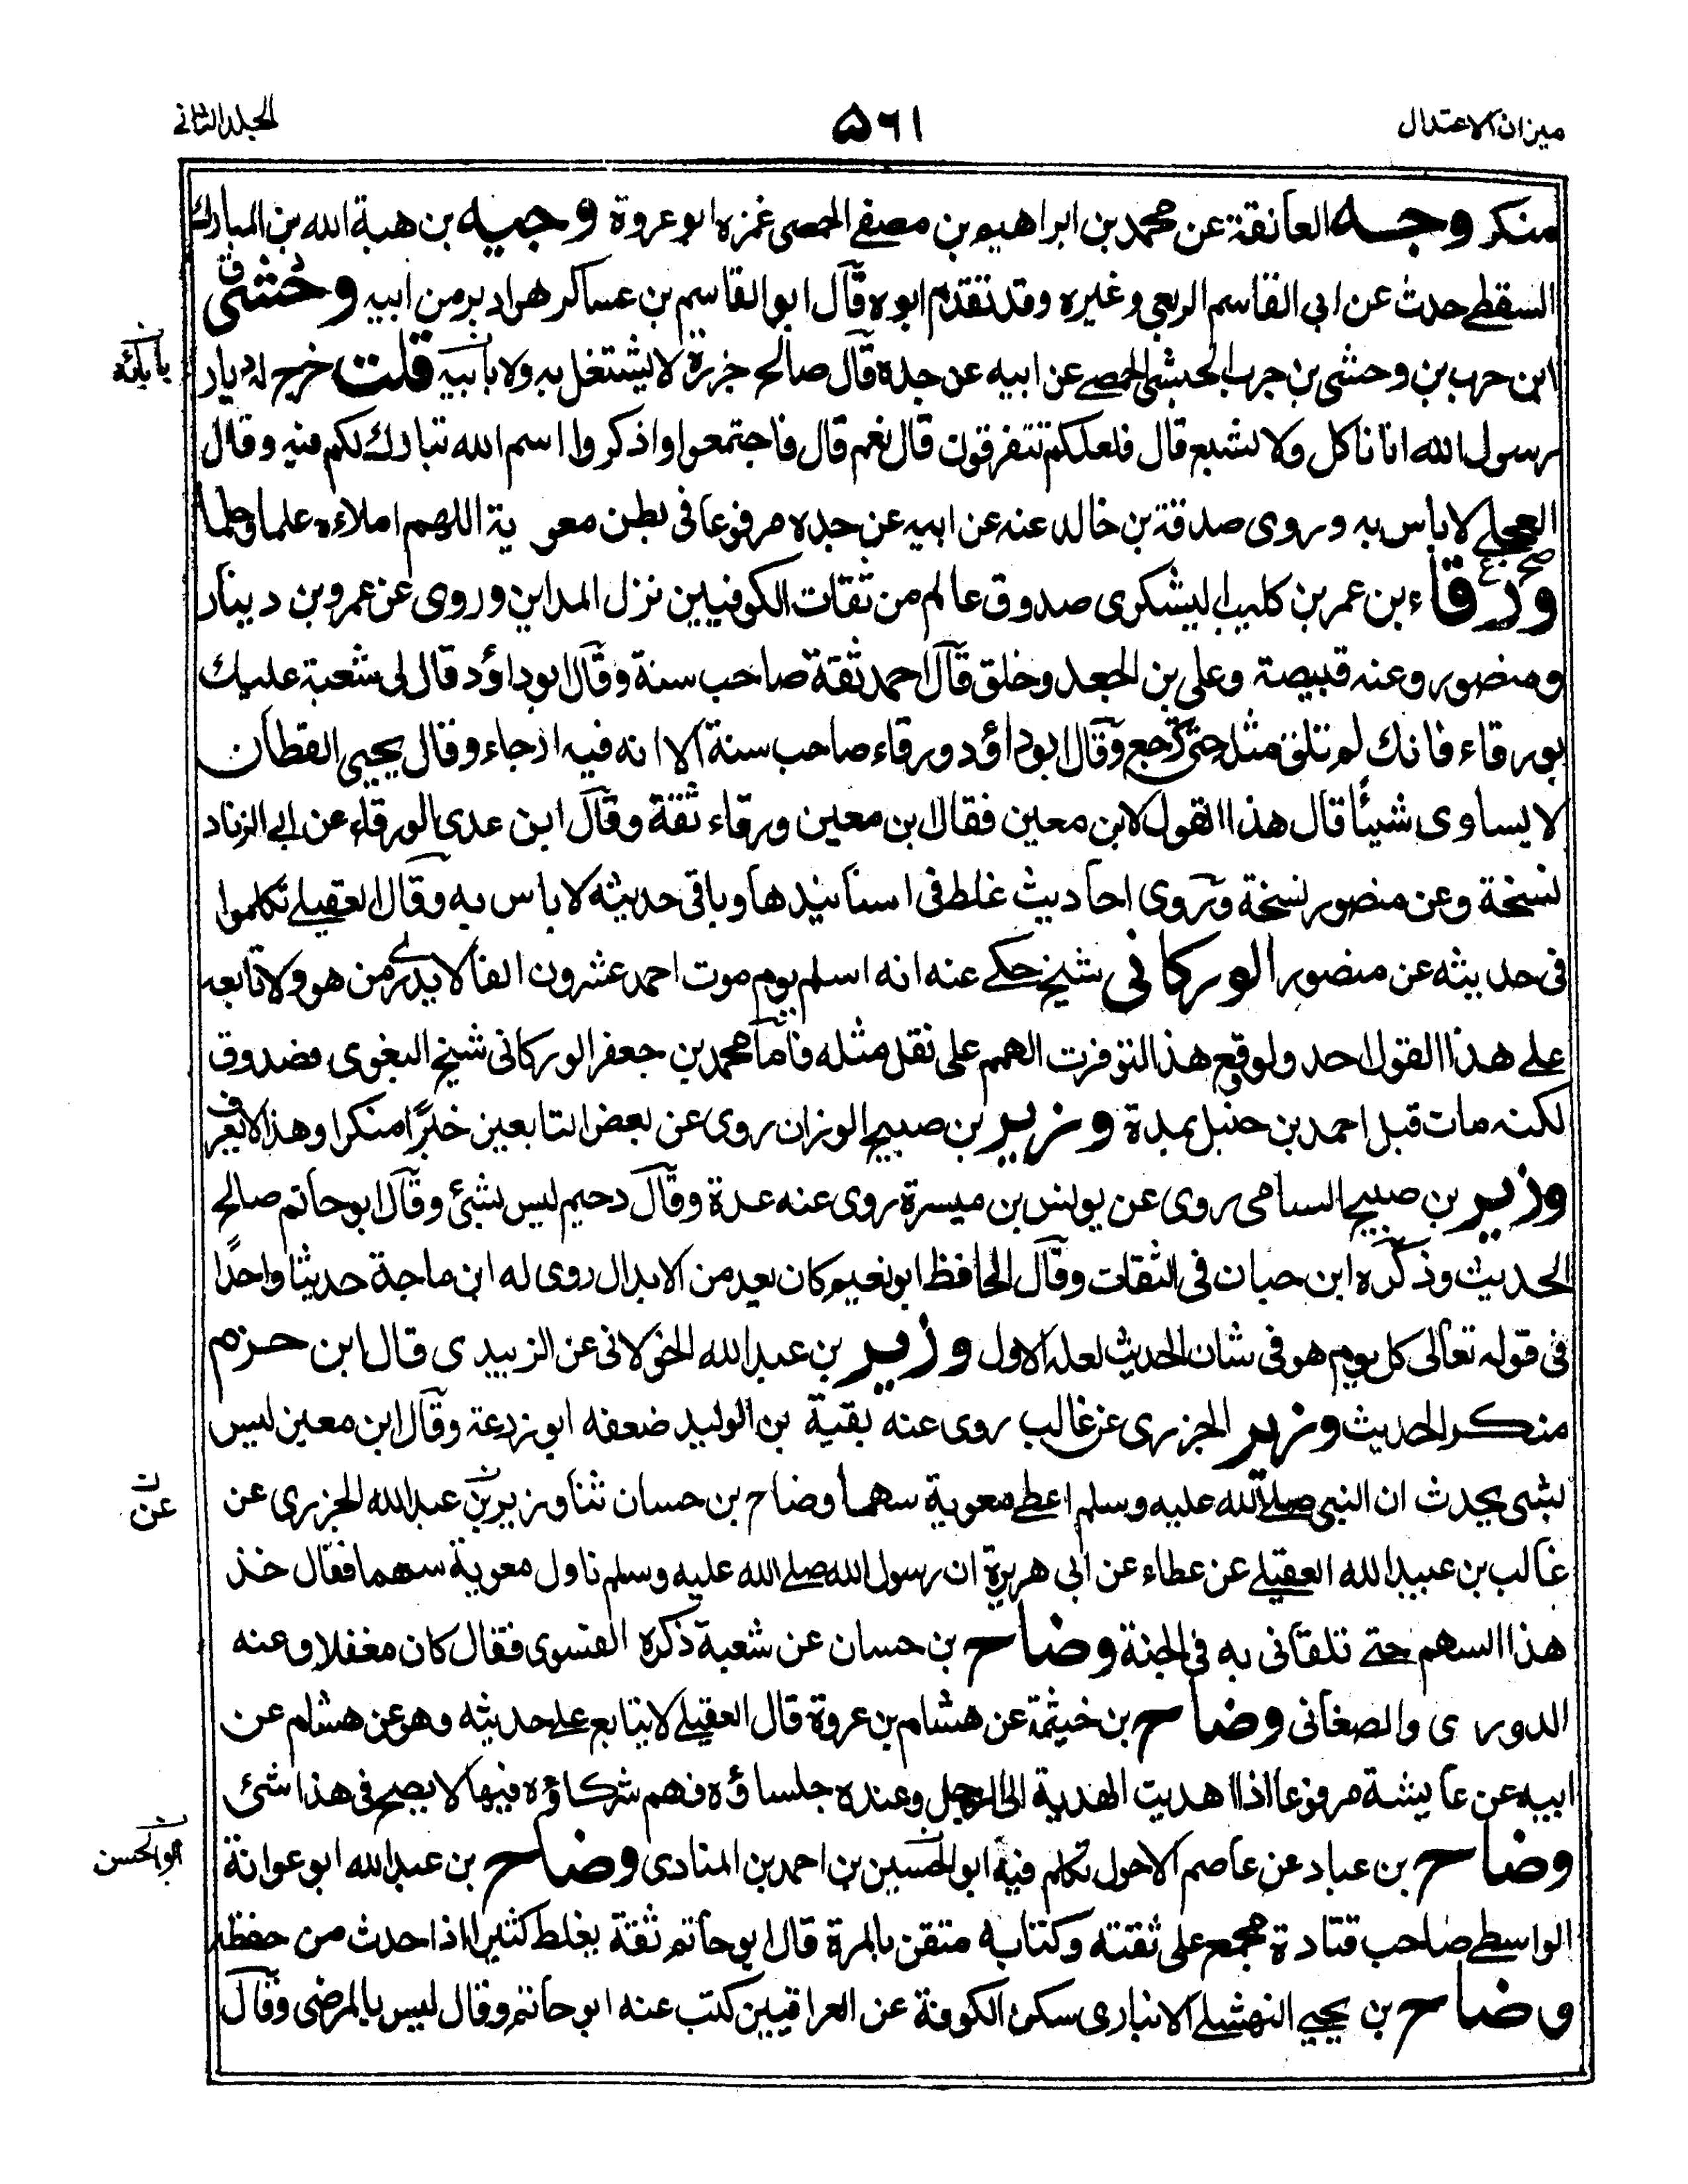 ميزان الاعتدال
٥٦١
المجلد الثاني
منكر وجه العانقة عن محمد بن ابراهيم بن مصفى الحمصى غمزه ابو عروة وجيه بن هبة الله بن المبارك
السقطي حدث عن ابي القاسم الربعي وغيره وقد تقدم ابوه قال ابو القاسم بن عساكر من ابيه وحشى ق
ابن حرب بن وحشى بن حرب الحبشى الحمصي عن ابيه عن جده قال صالح جزرة لا يشتغل به ولا بابيه قلت خرج له د يار
بأبائه
رسول الله انا ناكل ولا نشبع قال فلعلكم تتفرقون قال نعم قال فاجتمعوا واذكروا اسم الله تبارك لكم فيه وقال
العجلي لا باس به وروى صدقة بن خالد عنه عن ابيه عن جده مرفوعا فى بطن معوية اللهم املاءه علما وحلما
صح ع
ورقاء بن عمر بن كليب اليشكرى صدوق عالم من ثقات الكوفيين نزل المداين وروى عن عمرو بن دينار
ومنصور وعنه قبيصة وعلي بن الجعد وخلق قال احمد ثقة صاحب سنة وقال ابو داؤد قال لى شعبة عليك
بورقاء فانك لم تلق مثله حتى ترجع وقال ابو داؤد ورقاء صاحب سنة الا انه فيه ارجاء وقال يحيى القطان
لا يساوى شيئًا قال هذا القول لابن معين فقال ابن معين ورقاء ثقة وقال ابن عدى الورقاء عن ابي الزناد
نسخة وعن منصور نسخة وروى احاديث غلط فى اسانيدها وباقى حديثه لا باس به وقال العقيلي تكلموا
فى حديثه عن منصور الوركانى شيخ حكى عنه انه اسلم يوم موت احمد عشرون الفا لا يدرى من هو ولا تابعه
على هذا القول احد ولو وقع هذا لتوفرت الهمم على نقل مثله فاما محمد بن جعفر الوركانى شيخ البغوى فصدوق
لكنه مات قبل احمد بن حنبل بمدة وزير بن صبيح الوزان روى عن بعض التابعين خبرًا منكرا وهذا لا يعرف
وزير بن صبيح السامى روى عن يونس بن ميسرة روى عنه عدة وقال دحيم ليس بشئ وقال ابو حاتم صالح
الحديث وذكره ابن حبان فى الثقات وقال الحافظ ابو نعيم كان يعد من الابدال روى له ابن ماجة حديثا واحدًا
فى قوله تعالى كل يوم هو فى شان الحديث لعله الاول وزير بن عبد الله الخولانى عن الزبيدى قال ابن حزم
منكر الحديث وزير الجزرى عن غالب روى عنه بقية بن الوليد ضعفه ابو زرعة وقال ابن معين ليس
بشى يحدث ان النبى صلى الله عليه وسلم اعطى معوية سهما وضاح بن حسان ثنا وزير بن عبد الله الجزرى عن
عن
غالب بن عبيد الله العقيلي عن عطاء عن ابى هريرة ان رسول الله صلى الله عليه وسلم ناول معوية سهما فقال خذ
هذا السهم حتى تلقانى به فى الجنة وضاح بن حسان عن شعبة ذكره الفسوى فقال كان مغفلا وعنه
الدورى والصغانى وضاح بن خيثمة عن هشام بن عروة قال العقيلي لا يتابع على حديثه وهو عن هشام عن
ابيه عن عايشة مرفوعا اذا اهديت الهدية الى الرجل وعنده جلساؤه فهم شركاؤه فيها لا يصح فى هذا شئ
وضاح بن عباد عن عاصم الاحول تكلم فيه ابو الحسين بن احمد بن المنادى وضاح بن عبد الله ابو عوانة
ابو الحسن
الواسطى صاحب قتادة مجمع على ثقته وكتابه متقن بالمرة قال ابو حاتم ثقة يغلط كثيرا اذا حدث من حفظه
وضاح بن يحيى النهشلي الانبارى سكن الكوفة عن العراقيين كتب عنه ابو حاتم وقال ليس بالمرضى وقال